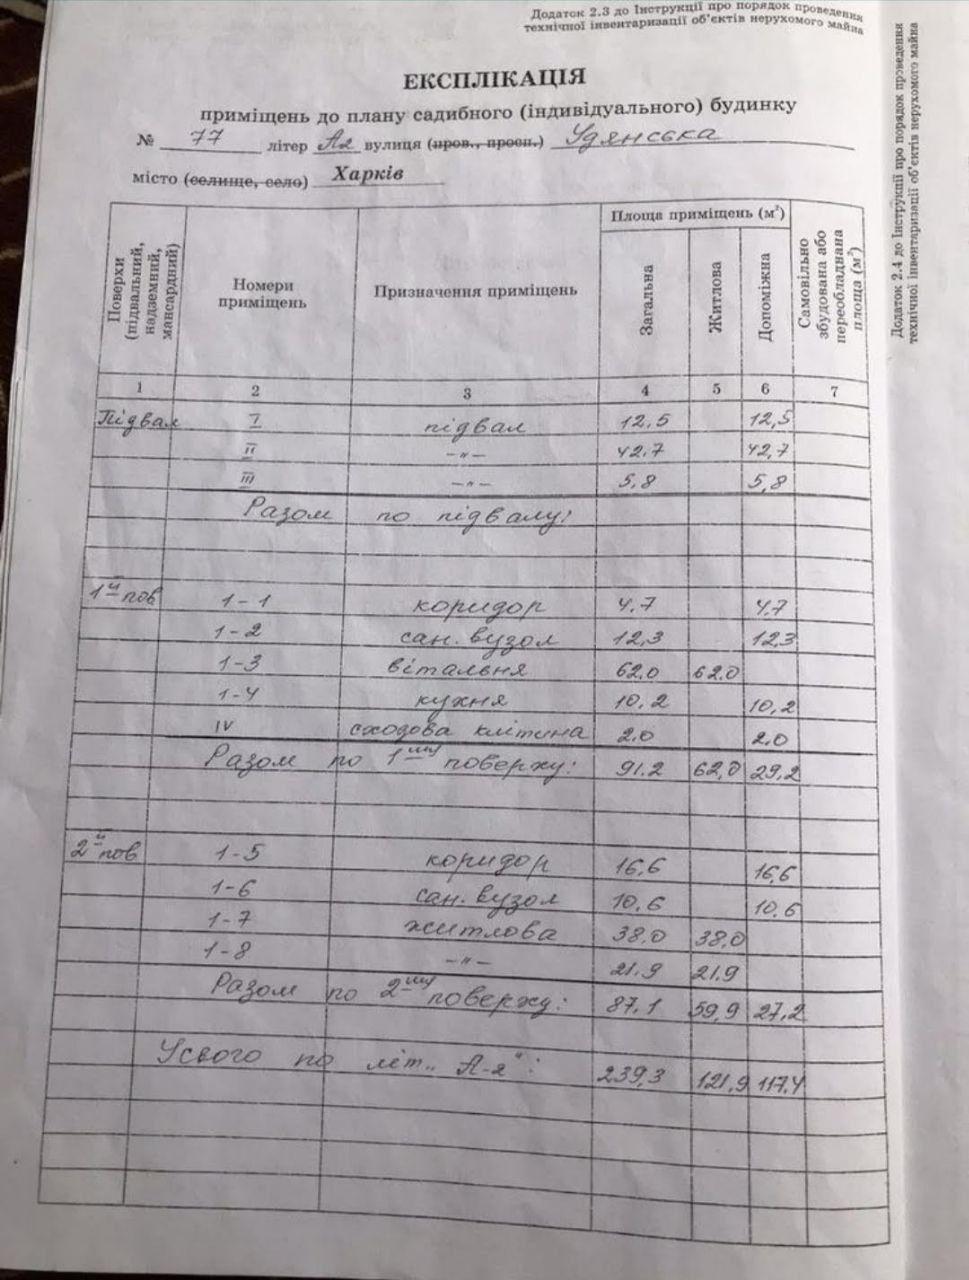 Додаток 2.3 до Інструкції про порядок проведення
технічної інвентаризації об'єктів нерухомого майна
Додаток 2.4 до Інструкції про порядок проведення
технічної інвентаризації об'єктів нерухомого майна
ЕКСПЛІКАЦІЯ
приміщень до плану садибного (індивідуального) будинку
№ 77 літер Ая вулиця (пров., просп.) Удянська
місто (селище, село) Харків
Поверхи (підвальний, надземний, мансардний) Номери приміщень Призначення приміщень Площа приміщень (м²) Загальна Житлова Допоміжна Самовільно збудована або переобладнана площа (м²)
1 2 3 4 5 6 7
Підвал I підвал 12,5 12,5
II –„– 42.7 42,7
III –„– 5,8 5,8
Разом по підвалу:
1й пов 1-1 коридор 4.7 4.7
1-2 сан. вузол 12,3 12,3
1-3 вітальня 62,0 62.0
1-4 кухня 10,2 10,2
IV сходова клітина 2.0 2.0
Разом по 1му поверху: 91.2 62,0 29,2
2й пов 1-5 коридор 16,6 16,6
1-6 сан. вузол 10.6 10.6
1-7 житлова 38,0 38,0
1-8 –„– 21.9 21.9
Разом по 2му поверху: 87.1 59,9 27,2
Усього по літ. „А-я": 239,3 121,9 117,4